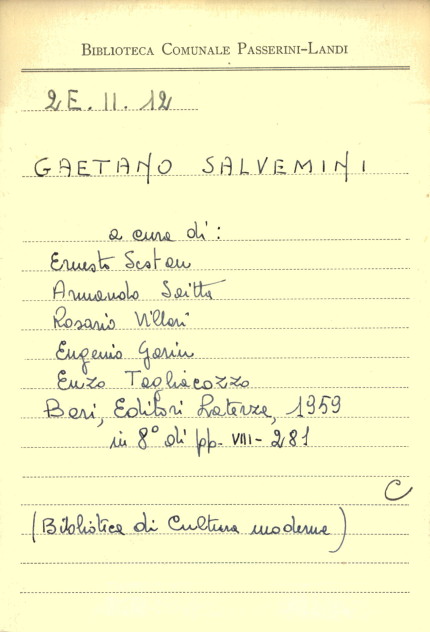 BIBLIOTECA COMUNALE PASSERINI-LANDI
2E. II. 12
GAETANO SALVEMINI
a cura di:
Ernesto Sestan
Armando Saitta
Rosario Villari
Eugenio Garin
Enzo Tagliacozzo
Bari, Editori Laterza, 1959
in 8° di pp. VIII- 281
C
(Biblioteca di Cultura moderna)